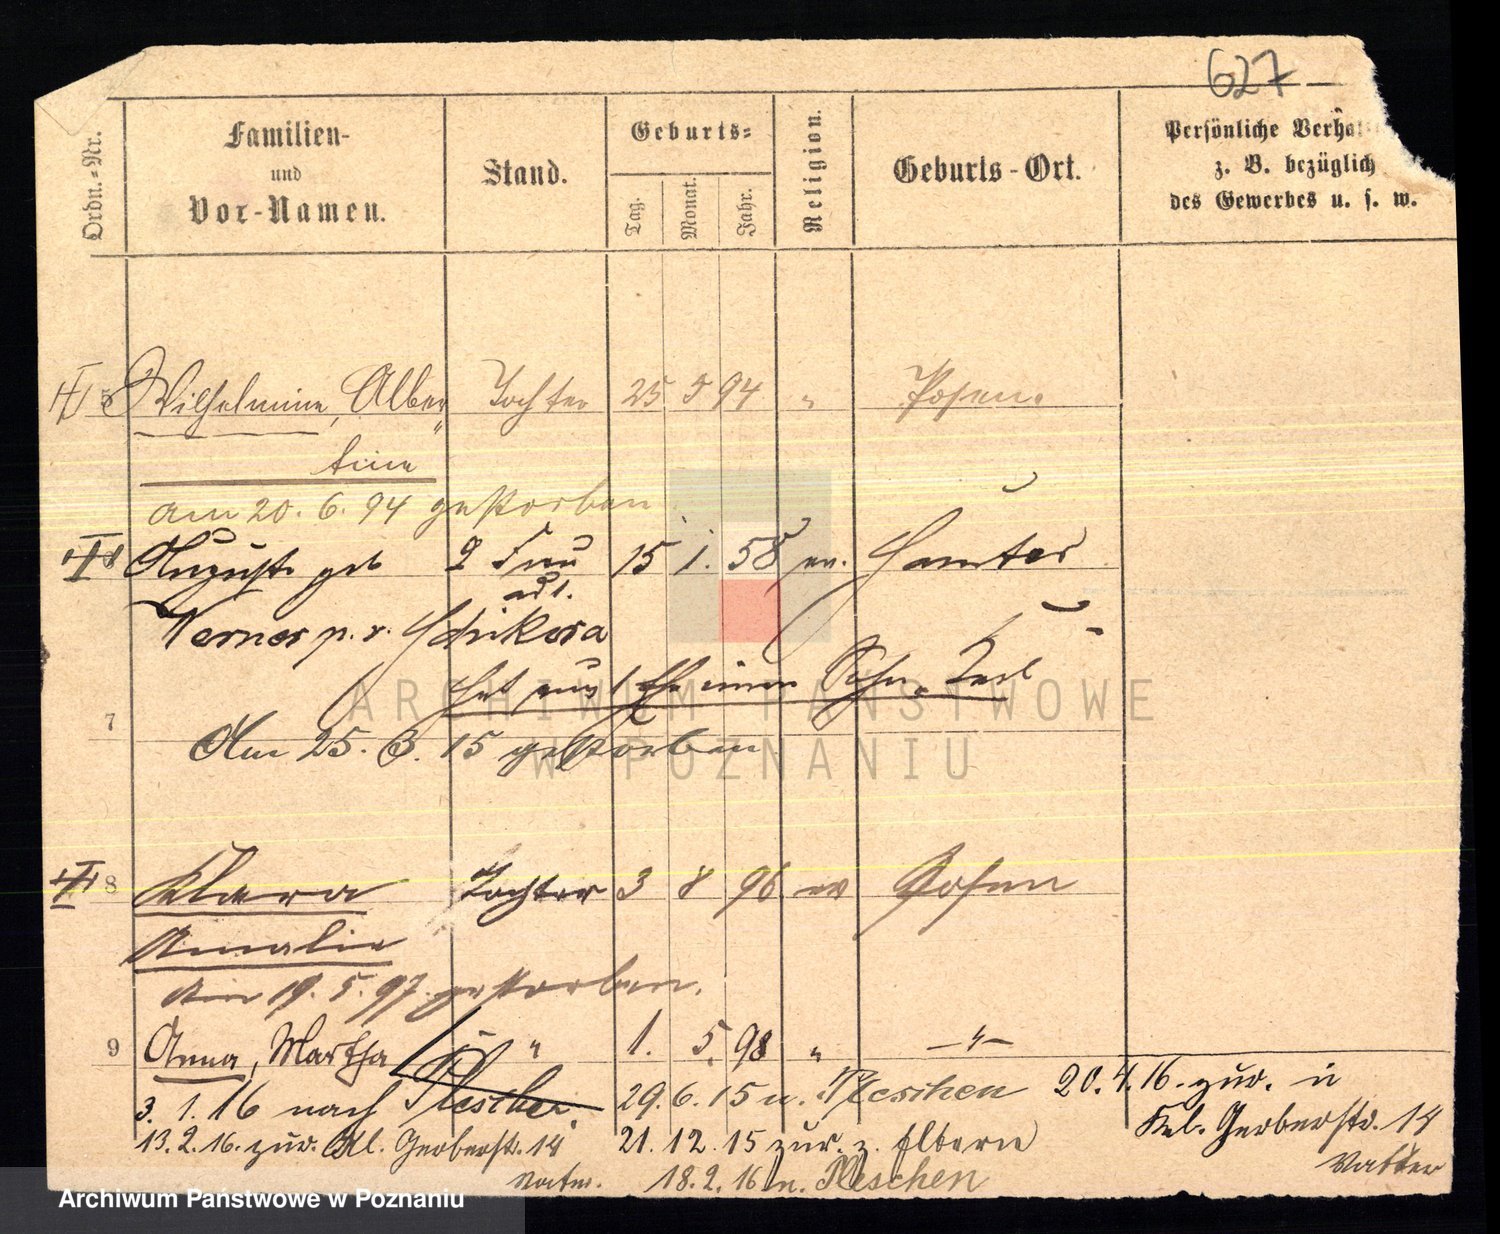 627
Ordn.-Nr.
Familien-
und
Vor-Namen.
Stand.
Geburts-
Tag.
Monat.
Jahr.
Religion.
Geburts-Ort.
Persönliche Verhä
z. B. bezüglich
des Gewerbes u. s. w.
5 Wilhelmine, Alber Tochter 25 5 94 " Posen.
tine
am 20. 6. 94 gestorben
Auguste geb 2 Frau 15 1. 58 ev. Samter
Werner
Hat aus 1 Ehe einen Sohn
7
Am 25. 3. 15 gestorben
ARCHIWUM PAŃSTWOWE
W POZNANIU
8 Klara Tochter 3 8 96 ev Posen
Amalie
Am 19. 5. 97 gestorben.
9 Anna, Martha " 1. 5. 98 " —"—
3. 1. 16 nach Pleschen 29. 6. 15 n. Pleschen 20. 4. 16. zur. in
Kl. Gerberstr. 14
13. 2. 16. zur. Kl. Gerberstr. 14 21. 12. 15 zur. z. Eltern
Vater
18. 2. 16 n. Pleschen
Archiwum Państwowe w Poznaniu